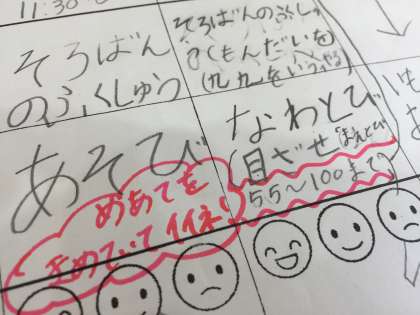 11:30
そろばん
のふくしゅう
そろばんのふくしゅ
(もんだいを
(九九をいう
あそび
なわとび
(目ざせ まえとび
55〜100まで)
めあてを
きめていてイイネ!